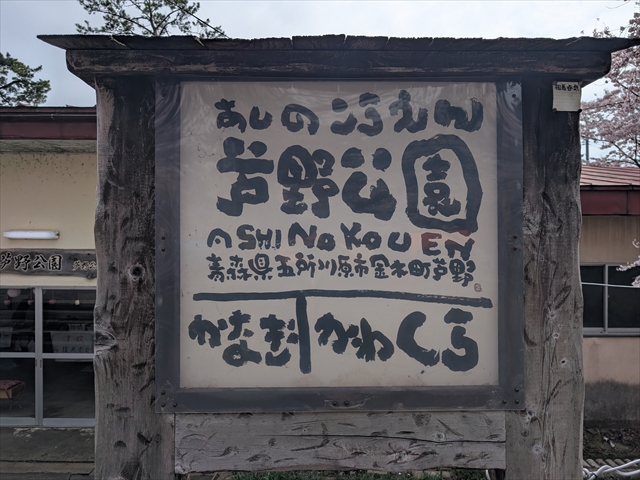 あしのこうえん
芦野公園
ASHINoKoUEN
青森県五所川原市金木町芦野
かなぎ かわくら
芦野公園